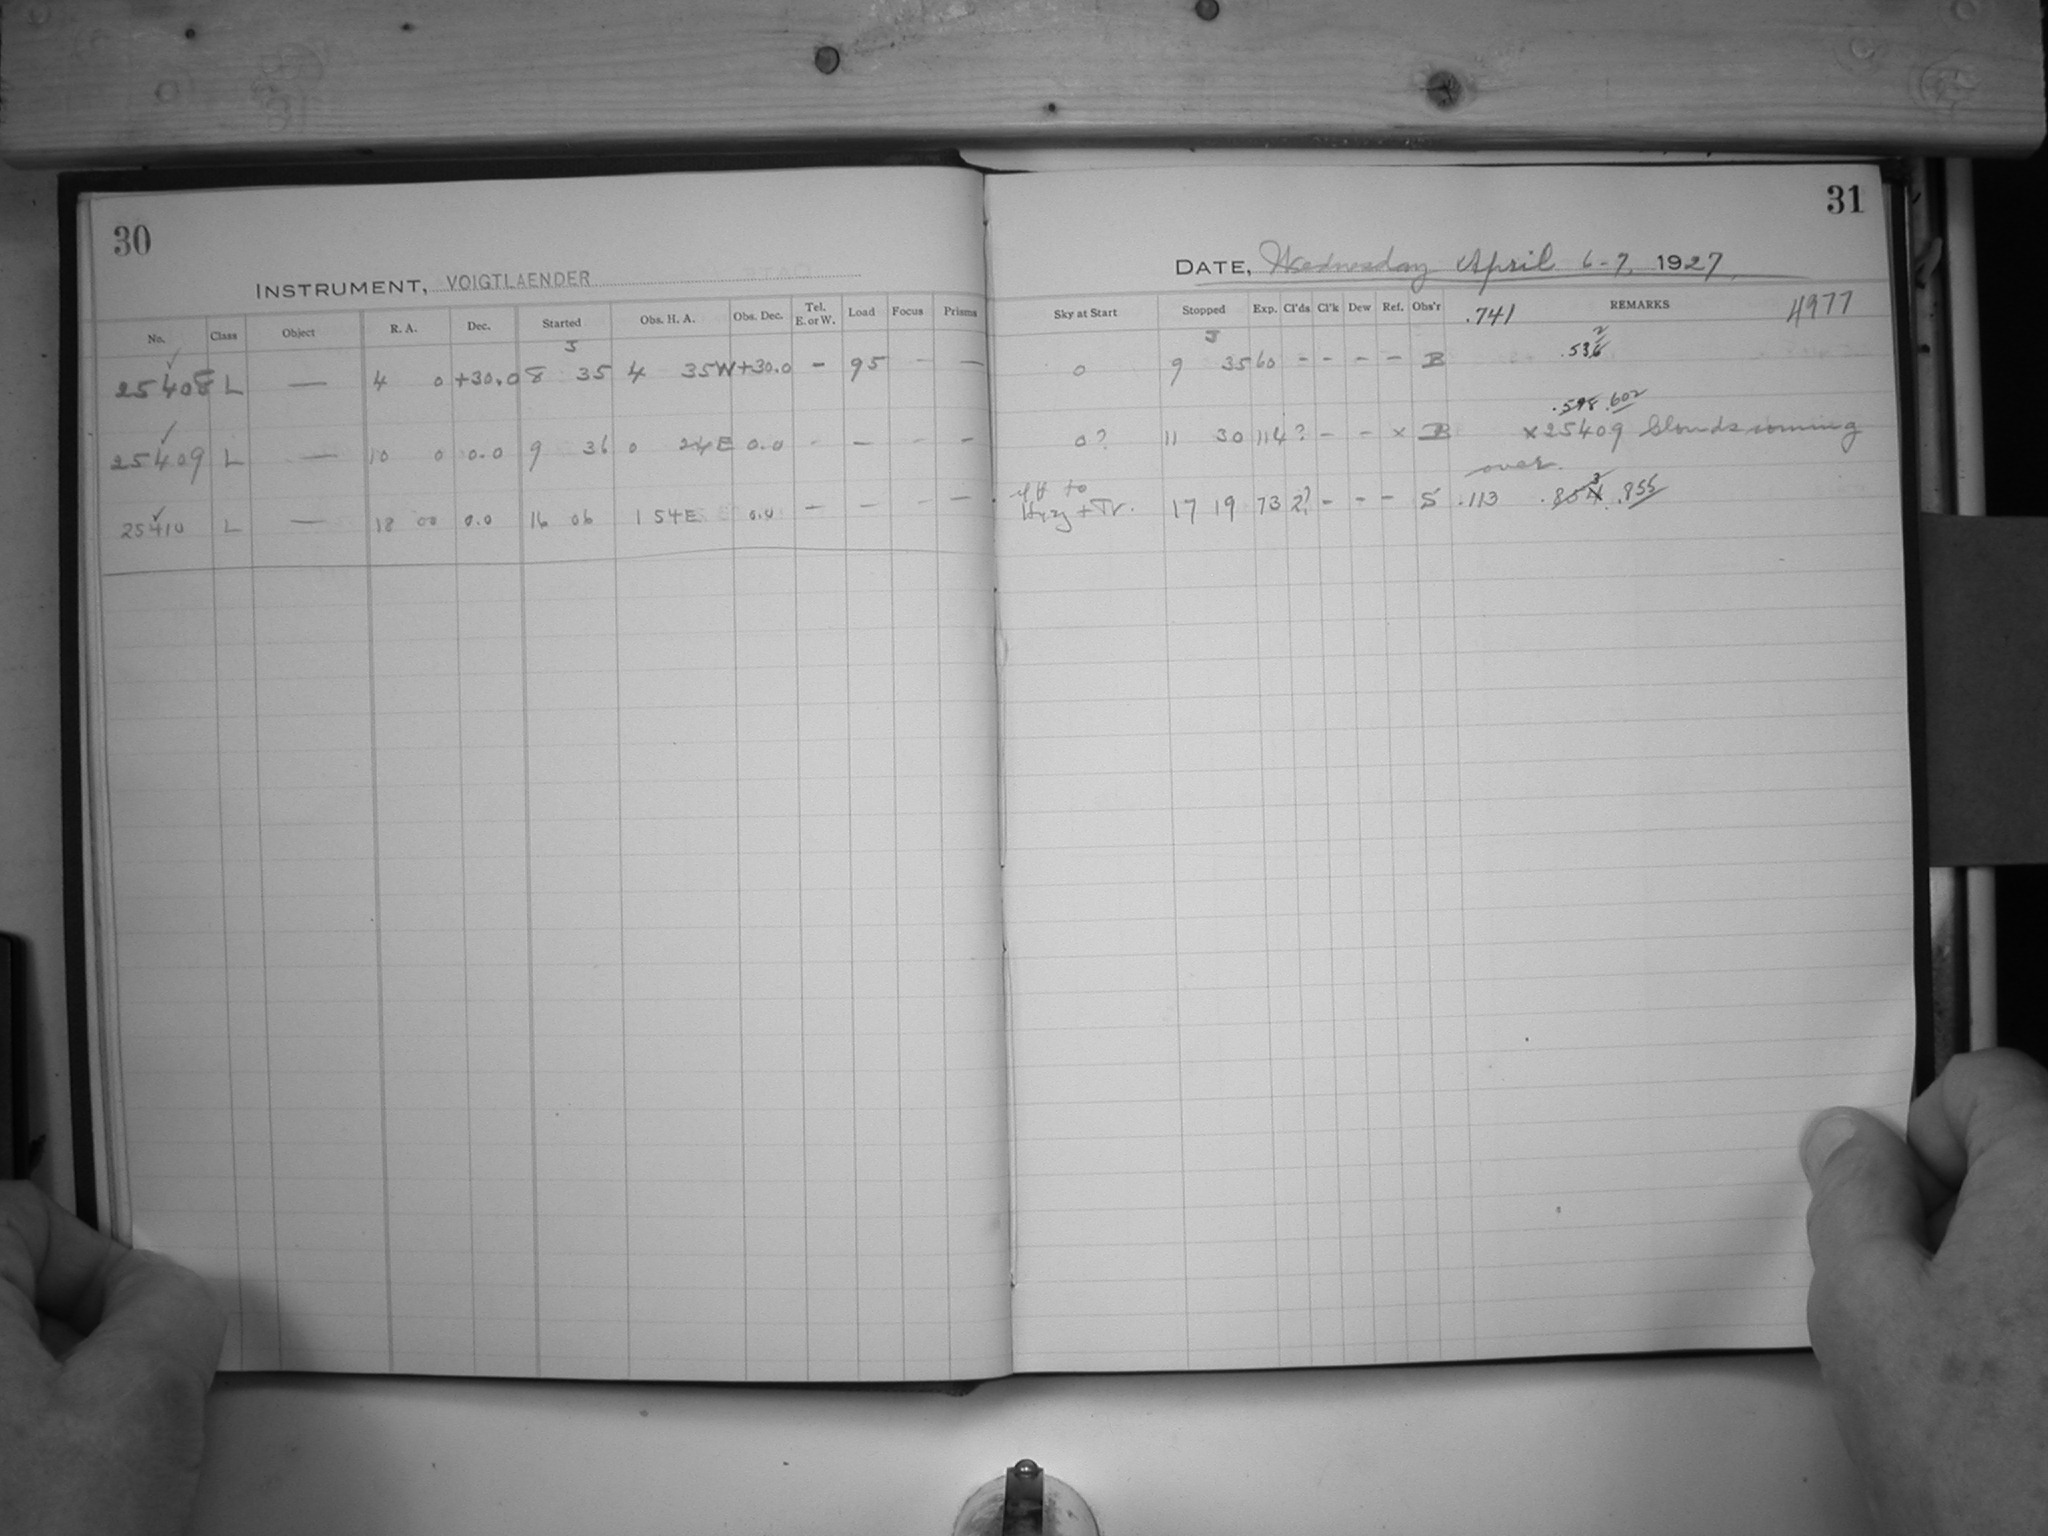 30
INSTRUMENT, VOIGTLAENDER
No. Class Object R. A. Dec. Started Obs. H. A. Obs. Dec. Tel. E. or W. Load Focus Prisms
J
25408 L — 4 0 +30.0 8 35 4 35W +30.0 - 95 - —
25409 L — 10 0 0.0 9 36 0 24E 0.0 - — - —
25410 L — 18 00 0.0 16 06 1 54E 0.0 — — - —
31
DATE, Wednesday April 6-7, 1927
Sky at Start Stopped Exp. Cl'ds Cl'k Dew Ref. Obs'r .741 REMARKS 4977
J
0 9 35 60 - - - - B .536 2
.598 .602
0? 11 30 114 ? - - x B x25409 Clouds coming
over.
Hazy + Tr. 17 19 73 2? - - - S .113 .854 3 .855